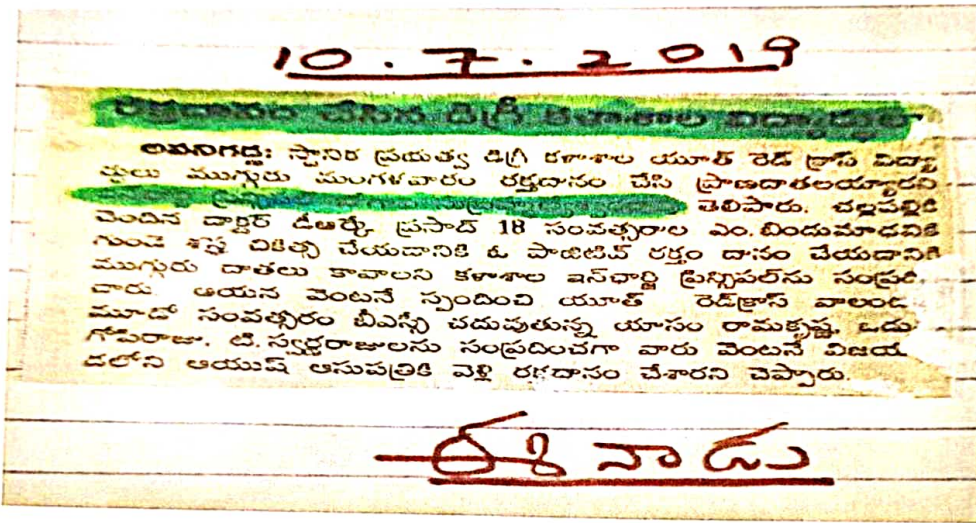 10.7.2019
రక్తదానం చేసిన డిగ్రీ కళాశాల విద్యార్థులు
అవనిగడ్డ: స్థానిక ప్రభుత్వ డిగ్రీ కళాశాల యూత్ రెడ్ క్రాస్ విద్యా
ర్థులు ముగ్గురు మంగళవారం రక్తదానం చేసి ప్రాణదాతలయ్యారని
తెలిపారు. చల్లపల్లికి
చెందిన డాక్టర్ డీఆర్కే ప్రసాద్ 18 సంవత్సరాల ఎం.బిందుమాధవికి
గుండె శస్త్ర చికిత్స చేయడానికి ఓ పాజిటివ్ రక్తం దానం చేయడానికి
ముగ్గురు దాతలు కావాలని కళాశాల ఇన్‌ఛార్జి ప్రిన్సిపల్‌ను సంప్రదిం
చారు. ఆయన వెంటనే స్పందించి యూత్ రెడ్‌క్రాస్ వాలంట
మూడో సంవత్సరం బీఎస్సీ చదువుతున్న యాసం రామకృష్ణ, ఒడు
గోపిరాజు, టి.స్వర్ణరాజులను సంప్రదించగా వారు వెంటనే విజయ
డలోని ఆయుష్ ఆసుపత్రికి వెళ్లి రక్తదానం చేశారని చెప్పారు.
ఈనాడు